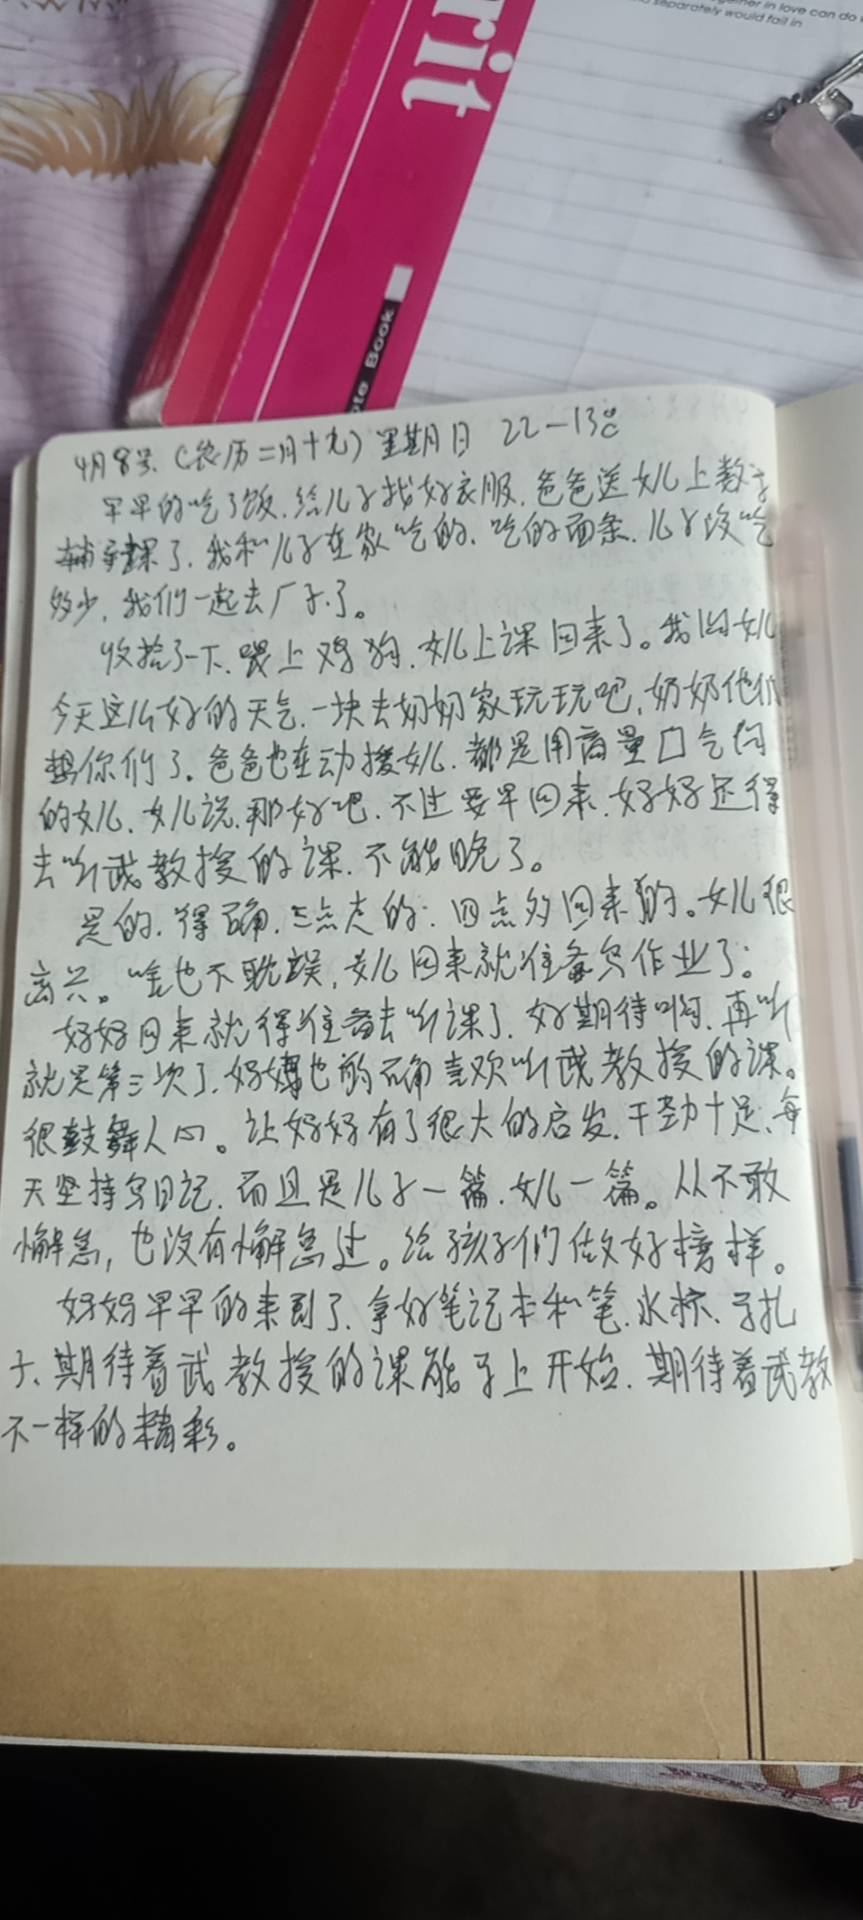 gether in love can do
separately would fail in
rit
ote Book
4月8号.(农历二月十九) 星期日 22—13℃
早早的吃了饭.给儿子找好衣服.爸爸送女儿上数学
辅导课了.我和儿子在家吃的.吃的面条.儿子没吃
多少,我们一起去厂子了。
收拾了一下.喂上鸡狗.女儿上课回来了。我问女儿
今天这么好的天气.一块去奶奶家玩玩吧,奶奶他们
想你们了。爸爸也在动援女儿.都是用商量口气问
的女儿.女儿说.那好吧.不过要早回来.妈妈还得
去听武教授的课.不能晚了。
是的.得确.三点走的:四点多回来的。女儿很
高兴。啥也不耽误,女儿回来就准备写作业了:
妈妈回来就得准备去听课了.好期待啊.再听
就是第三次了.妈妈也的确喜欢听武教授的课。
很鼓舞人心。让妈妈有了很大的启发.干劲十足,每
天坚持写日记.而且是儿子一篇.女儿一篇。从不敢
懈怠,也没有懈怠过。给孩子们做好榜样。
妈妈早早的来到了.拿好笔记本和笔.水杯.
期待着武教授的课能马上开始.期待着武教
不一样的精彩。